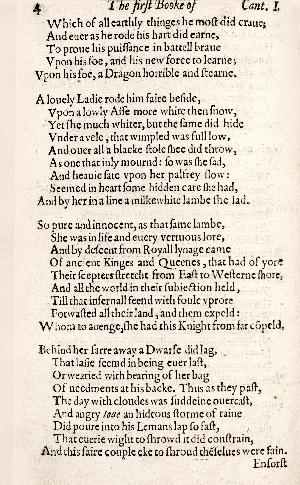 4 The first Booke of Cant. I.
Which of all earthly thinges he most did craue;
And euer as he rode his hart did earne,
To proue his puissance in battell braue
Vpon his foe, and his new force to learne;
Vpon his foe, a Dragon horrible and stearne.
A louely Ladie rode him faire beside,
Vpon a lowly Asse more white then snow,
Yet she much whiter, but the same did hide
Vnder a vele, that wimpled was full low,
And ouer all a blacke stole shee did throw,
As one that inly mournd: so was she sad,
And heauie sate vpon her palfrey slow:
Seemed in heart some hidden care she had,
And by her in a line a milkewhite lambe she lad.
So pure and innocent, as that same lambe,
She was in life and euery vertuous lore,
And by descent from Royall lynage came
Of ancient Kinges and Queenes, that had of yore
Their scepters stretcht from East to Westerne shore,
And all the world in their subiection held,
Till that infernall feend with foule vprore
Forwasted all their land, and them expeld:
Whom to auenge, she had this Knight from far cōpeld,
Behind her farre away a Dwarfe did lag,
That lasie seemd in being euer last,
Or wearied with bearing of her bag
Of needments at his backe. Thus as they past,
The day with cloudes was suddeine ouercast,
And angry Ioue an hideous storme of raine
Did poure into his Lemans lap so fast,
That euerie wight to shrowd it did constrain,
And this faire couple eke to shroud thēselues were fain.
Enforst